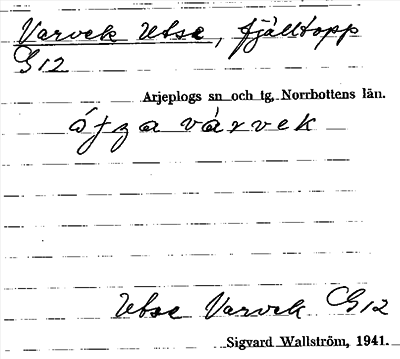 Varvek Utse, fjälltopp
G12
Arjeplogs sn och tg, Norrbottens län.
ájza várvek
Utse Varvek G12
Sigvard Wallström, 1941.